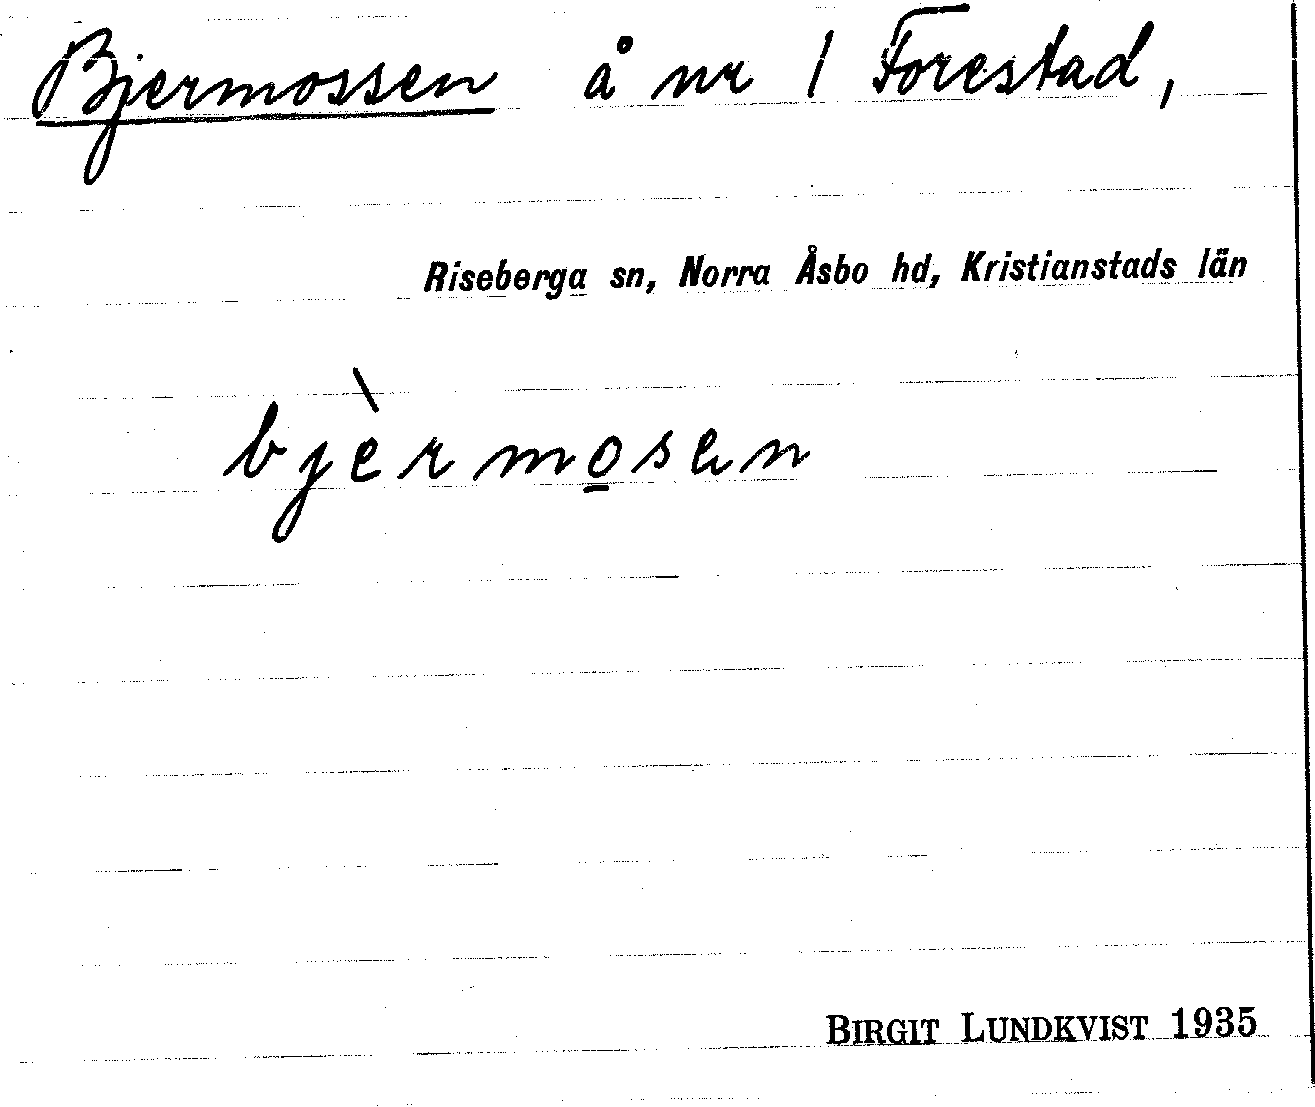 Bjermossen å nr 1 Forestad,
Riseberga sn, Norra Åsbo hd, Kristianstads län
bjèrmo̲sen
BIRGIT LUNDKVIST 1935